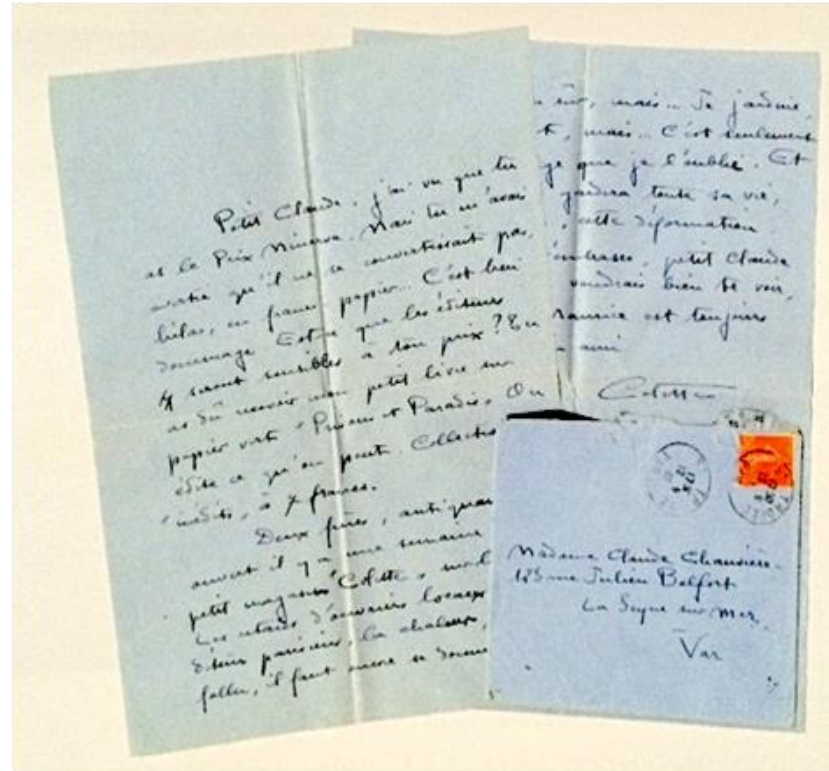 Petit Claude, j'ai vu que tu
as le Prix Minerva. Mais tu m'avais
avertie qu'il ne se convertissait pas,
hélas, en francs papier. C'est bien
dommage. Est-ce que les éditeurs
seront sensibles à ton prix? Tu
as dû recevoir mon petit livre sur
papier vert "Prisons et Paradis". On
édite ce qu'on peut. Collection
"inédits", à 7 francs.
Deux frères,
ouvert il y a une semaine
petit magasin "Colette"
Les retards d'ouvriers locaux
parisiens, la chaleur,
fallu, il faut encore
sûr, mais... Je jardine,
mais... C'est seulement
que je l'oublie. Et
gardera toute sa vie,
cette déformation.
petit Claude
voudrais bien te voir,
Maurice est toujours
ami
Colette
Madame Claude Chauvière
123 rue Julien Belfort
La Seyne sur mer
Var